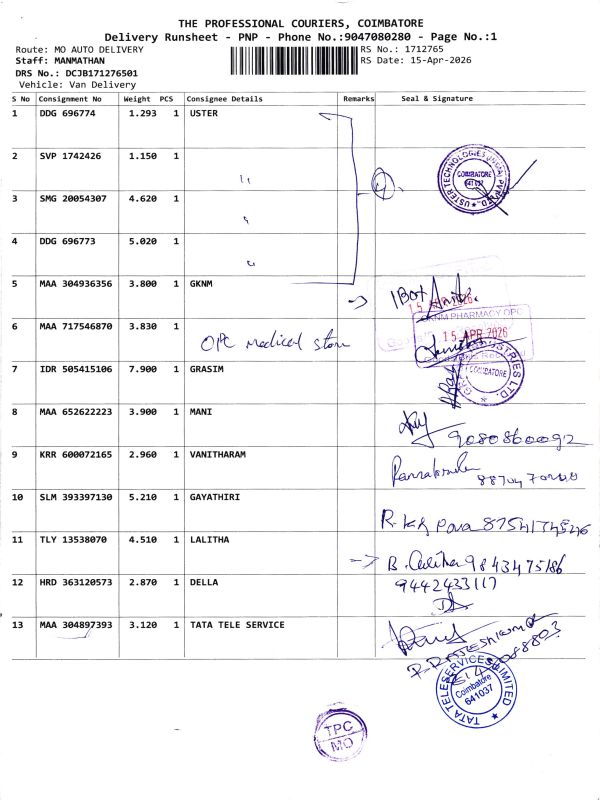 THE PROFESSIONAL COURIERS, COIMBATORE
Delivery Runsheet - PNP - Phone No.:9047080280 - Page No.:1
Route: MO AUTO DELIVERY RS No.: 1712765
Staff: MANMATHAN RS Date: 15-Apr-2026
DRS No.: DCJB171276501
Vehicle: Van Delivery
S No Consignment No Weight PCS Consignee Details Remarks Seal & Signature
1 DDG 696774 1.293 1 USTER
2 SVP 1742426 1.150 1 "
USTER TECHNOLOGIES
COIMBATORE
641 037
3 SMG 20054307 4.620 1 "
4 DDG 696773 5.020 1 "
5 MAA 304936356 3.800 1 GKNM
1 Box
15 APR 2026
GKNM PHARMACY OPC
6 MAA 717546870 3.830 1 OPC medical store
15 APR 2026
7 IDR 505415106 7.900 1 GRASIM
COIMBATORE
8 MAA 652622223 3.900 1 MANI
9080860092
9 KRR 600072165 2.960 1 VANITHARAM
10 SLM 393397130 5.210 1 GAYATHIRI
11 TLY 13538070 4.510 1 LALITHA
B. Lalitha 9843475186
12 HRD 363120573 2.870 1 DELLA
9442433117
13 MAA 304897393 3.120 1 TATA TELE SERVICE
TATA TELESERVICES LIMITED
Coimbatore
641037
TPC
MO